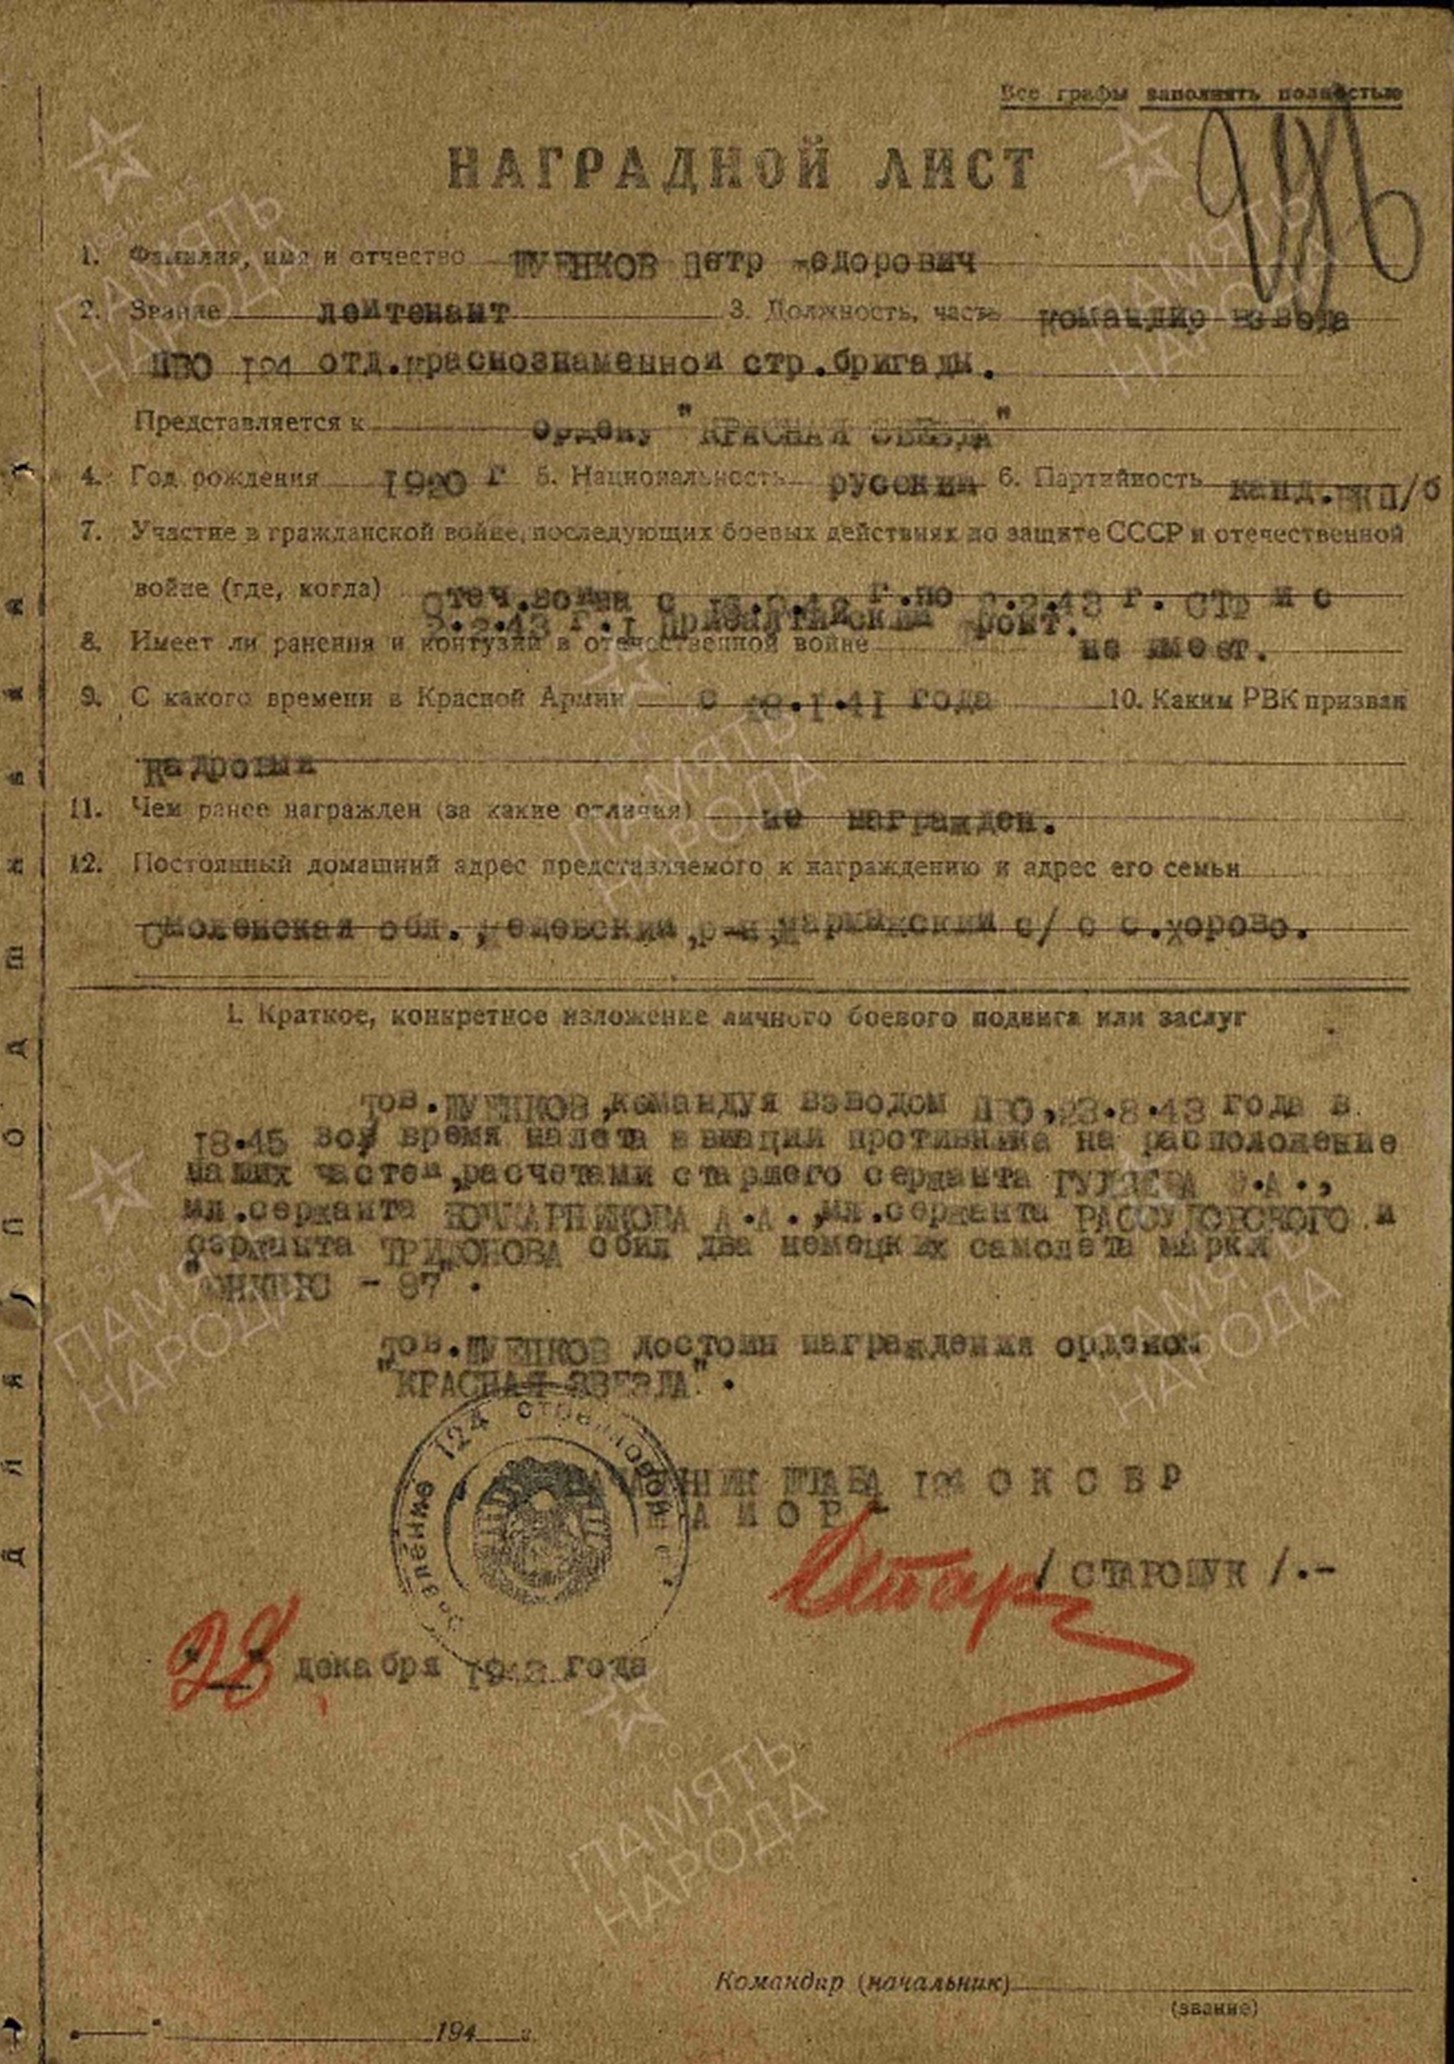 Все графы заполнять полностью
НАГРАДНОЙ ЛИСТ
1. Фамилия, имя и отчество Петр Федорович
2. Звание лейтенант 3. Должность, часть командир взвода
ПВО 124 отд.краснознаменной стр.бригады.
Представляется к ордену "КРАСНАЯ ЗВЕЗДА"
4. Год рождения 1920 г 5. Национальность русский 6. Партийность канд.ВКП/б
7. Участие в гражданской войне, последующих боевых действиях по защите СССР и отечественной
войне (где, когда) Отеч.война с г.по 2.2.43 г. СТФ и с
2.2.43 г. I Прибалтийский фронт.
8. Имеет ли ранения и контузии в отечественной войне не имеет.
9. С какого времени в Красной Армии с 1.41 года 10. Каким РВК призван
Кадровый
11. Чем ранее награжден (за какие отличия) не награжден.
12. Постоянный домашний адрес представляемого к награждению и адрес его семьи
Смоленская обл., р-н, с/с с.
I. Краткое, конкретное изложение личного боевого подвига или заслуг
тов. ,командуя взводом ПВО,23.8.43 года в
18.45 во время налета авиации противника на расположение
наших частей,расчетами старшего сержанта ГУЛЯЕВА
мл.сержанта А.А.,мл.сержанта и
сержанта сбил два немецких самолета марки
"ЮНКЕРС - 87".
тов. достоин награждения орденом
"КРАСНАЯ ЗВЕЗДА".
124 стрелковой
НАЧАЛЬНИК ШТАБА 124 О К С Б Р
М А Й О Р -
Стар / СТАРОЩУК /.-
"28" декабря 1943 года
Командир (начальник)
(звание)
194 г.
ПАМЯТЬ
НАРОДА
ПАМЯТЬ
НАРОДА
ПАМЯТЬ
НАРОДА
ПАМЯТЬ
НАРОДА
ПАМЯТЬ
НАРОДА
ПАМЯТЬ
НАРОДА